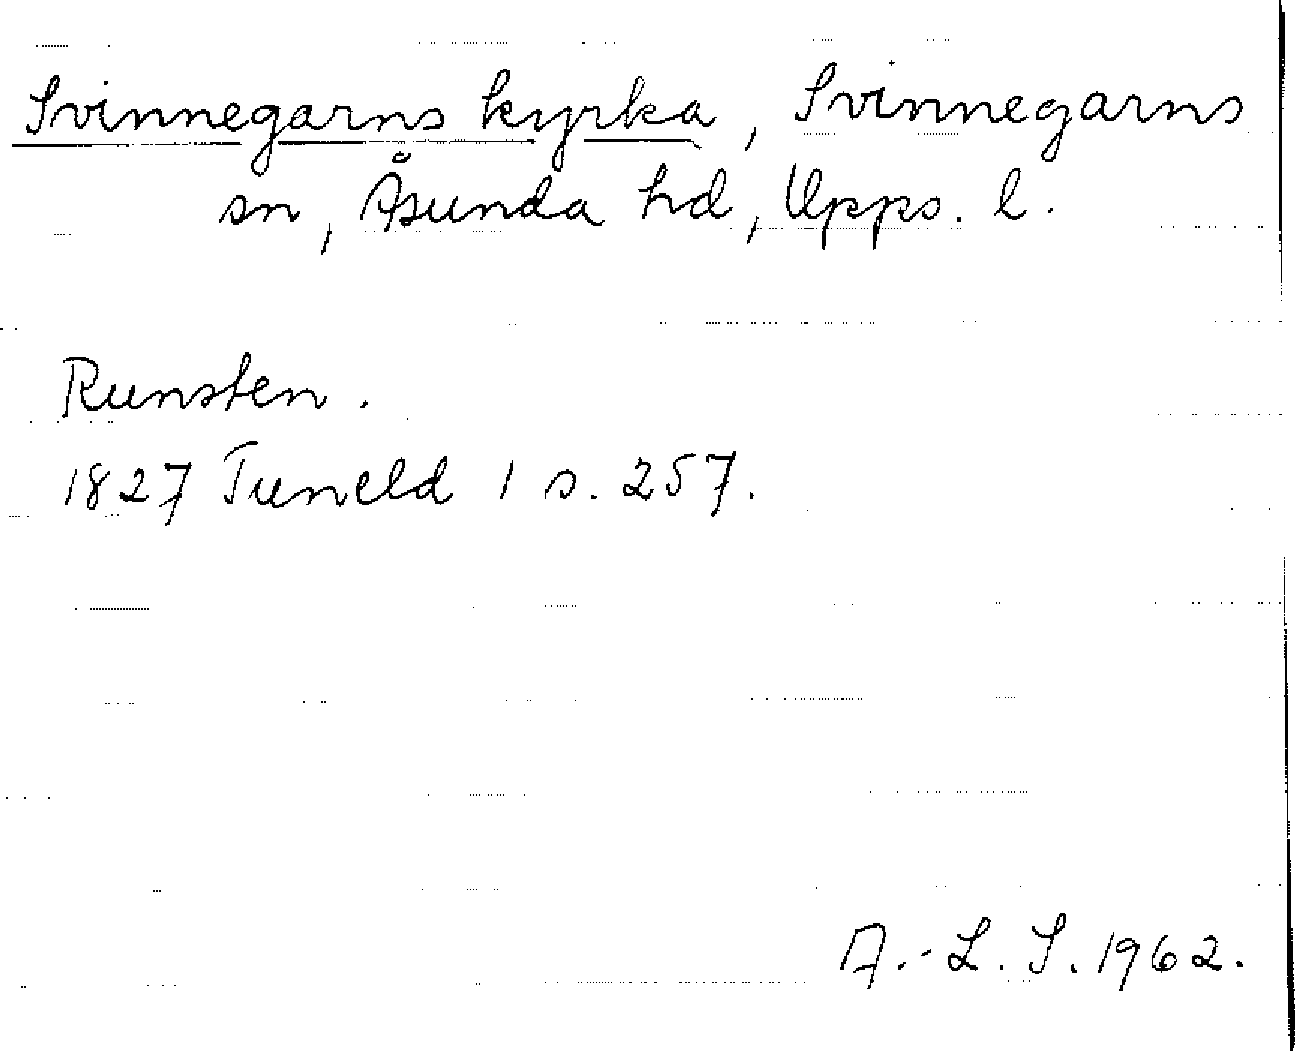 Svinnegarns kyrka, Svinnegarns
sn, Åsunda hd, Upps. l.
Runsten.
1827 Tuneld 1 s. 257.
A.-L. S. 1962.